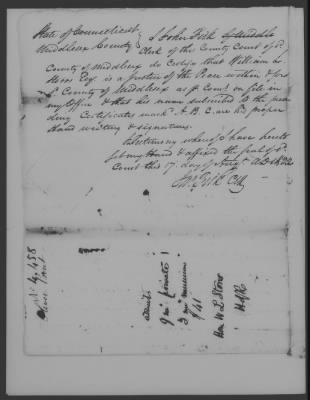 State of Connecticut
Middlesex County I John Fisk
Clerk of the County Court of sd
County of Middlesex do Certify that William
Esq is a Justice of the Peace within & for
sd County of Middlesex as pr Comn on file in
my Office & that his name subscribed to the prece
ding Certificates markd A. B. C. are his proper
Hand writing & signatures.
In testimony whereof I have hereto
set my Hand & affixed the seal of sd
Court this 17 day of Augt AD
Jno Fisk Clk
458
admits
9 mo private
3 mo
Hon W L Storrs
H of R